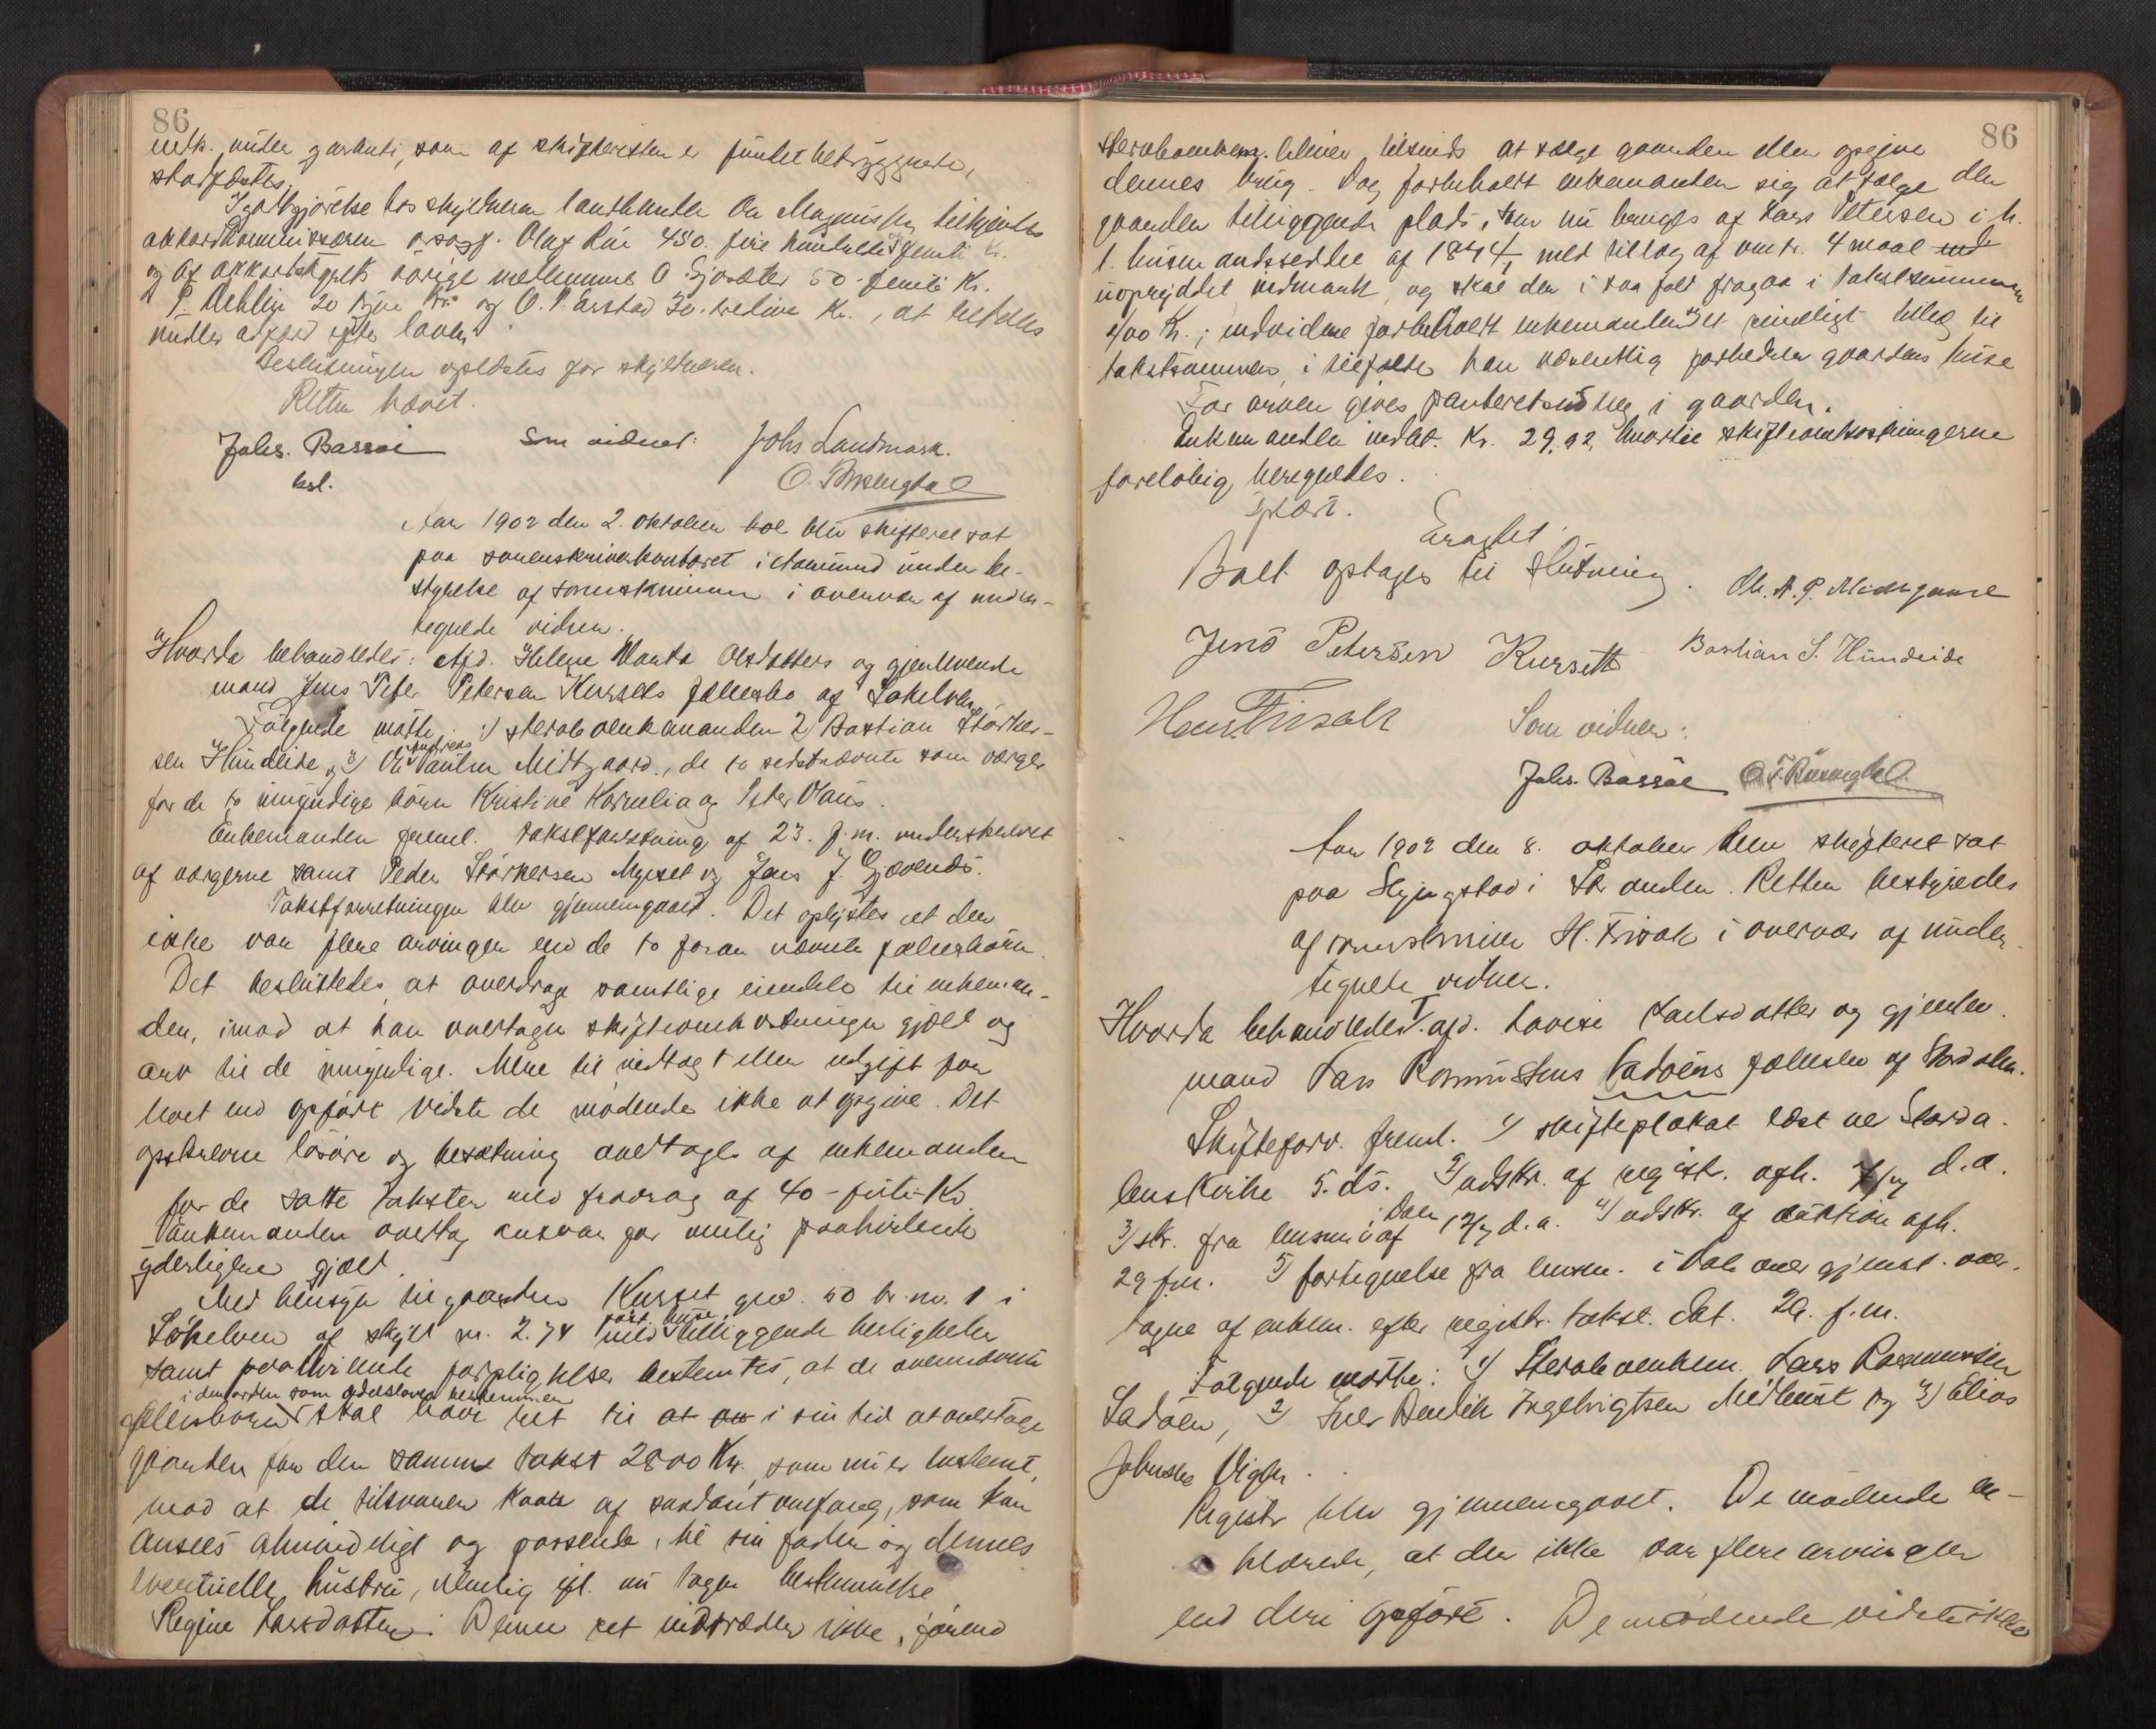 86
under garanti, som af skifteretten er fundet betryggende,
stadfæstes.
I godtgjørelse hos skyldneren landhandler Ole Magnussen tilkjendtes
akkordkommissæren Olaf 450. fire hundrede og femti Kr.
og af akkordstyrets øvrige medlemmer O. 50 femti Kr.
P. 20 tyve Kr. og O. P. Aarstad 30 tredive Kr., at betales
under adfærd efter loven.
Beslutningen oplæstes for skyldneren.
Retten hævet.
Johs. Bassøe Som vidner: Johs Landmark.
kst. O.
Aar 1902 den 2. oktober blev skifteret sat
paa sorenskriverkontoret i Aalesund under be-
styrelse af sorenskriveren i overvær af under-
tegnede vidner.
Hvorda behandledes: Afd. Helene Marta Olsdatters og gjenlevende
mand Jens Peter Petersen Kursets fællesbo af Søkelven.
Følgende mødte: 1) sterbøenkemanden 2) Bastian Størker-
sen Hundeide, 3) Ole Andreas Paulsen Midtgaard, de to sidstnævnte som værger
for de to umyndige børn Kristine Kornelia og Peter Olaus.
Enkemanden freml. takstforretning af 23. f.m. underskrevet
af værgerne samt Peder Størkersen Myrset og Jens J.
Takstforretningen blev gjennemgaaet. Det oplystes at der
ikke var flere arvinger end de to foran nævnte fællesbørn.
Det besluttedes at overdrage samtlige eiendele til enkeman-
den, imod at han overtager skifteomkostninger gjæld og
arv til de umyndige. Mere til indtægt eller udgift for
boet end opført vidste de mødende ikke at opgive. Det
opskrevne løsøre og besætning overtages af enkemanden
for de satte takster med fradrag af 40 - førti - Kr.
Enkemanden overtog ansvar for mulig paahvilende
yderligere gjæld.
Med hensyn til gaarden Kurset gno. 50 br.no. 1 i
Søkelven af skyld m. 2.74 med samt huse tilliggende herligheder
samt paahvilende forpligtelser bestemtes, at de ovennævnte
fællesbørn i den orden som odelsloven bestemmer skal have ret til at i sin tid at overtage
gaarden for den samme takst 2800 Kr. som nu er bestemt,
mod at de tilsvarer kaar af saadant omfang, som kan
ansees almindeligt og passende, til sin fader og dennes
eventuelle hustru, nemlig efl. nu tagen bestemmelse
Regine Larsdatter. Denne ret indtræder ikke, førend
86
sterboenkem. bliver tilsinds at sælge gaarden eller opgive
dennes brug. Dog forbeholdt enkemanden sig at sælge den
gaarden tilliggende plads, som nu bruges af Lars Petersen i h.
t. husmandsseddel af 1874, med tillæg af omtr. 4 maal
uopryddet udmark, og skal der i saa fald fragaa i takstsummen
400 Kr.; endvidere forbeholdt enkemanden sig et rimeligt tillæg til
takstsummen, i tilfælde han væsentlig forbedrer gaardens huse
For arven gives panteret i gaarden.
Enkemanden indbet. Kr. 29,92, hvortil skifteomkostningerne
foreløbig beregnedes.
Oplæst.
Eragtet
Boet optages til slutning. Ole A. P. Midtgaard
Jens Petersen Kursett Bastian S. Hundeide
Hans Frisak Som vidner:
Johs. Bassøe
Aar 1902 den 8. oktober blev skifteret sat
paa Slyngstad i Stranden. Retten bestyredes
af sorenskriver H. Frisak i overvær af under-
tegnede vidner.
Hvorda behandledes: I. afd. Lovise Karlsdatter og gjenlev.
mand Lars Rasmussens Ladøens fællesbo af Stordalen.
Skifteforv. freml. 1) skifteplakat læst ved Storda-
lens Kirke 5. ds. 2) udskr. af registr. afh. d.a.
3) skr. fra lensm. i Dale af d.a. 4) udskr. af auktion afh.
29 f.m. 5) fortegnelse fra lensm. i Dale over gjenst. over-
tagne af enkem. efter registr. takst. dat. 29. f.m.
Følgende mødte: 1) Sterboenkem. Lars Rasmussen
Ladøen, 2) Iver Bendik Ingebrigtsen Midthust og 3) Elias
Johnsen Vigen.
Registr blev gjennemgaaet. De mødende er-
klærede, at der ikke var flere arvinger
end deri opført. De mødende vidste ikke